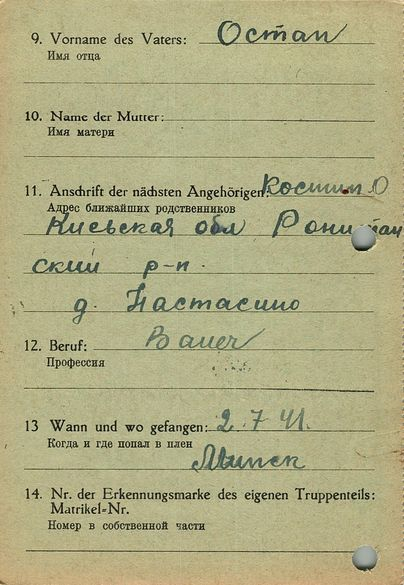 9. Vorname des Vaters: Остап
Имя отца
10. Name der Mutter:
Имя матери
11. Anschrift der nächsten Angehörigen:
Адрес ближайших родственников
Киевская обл
ский р-н.
д. Настасино
12. Beruf: Bauer
Профессия
13 Wann und wo gefangen: 2.7 41.
Когда и где попал в плен
Минск
14. Nr. der Erkennungsmarke des eigenen Truppenteils:
Matrikel-Nr.
Номер в собственной части